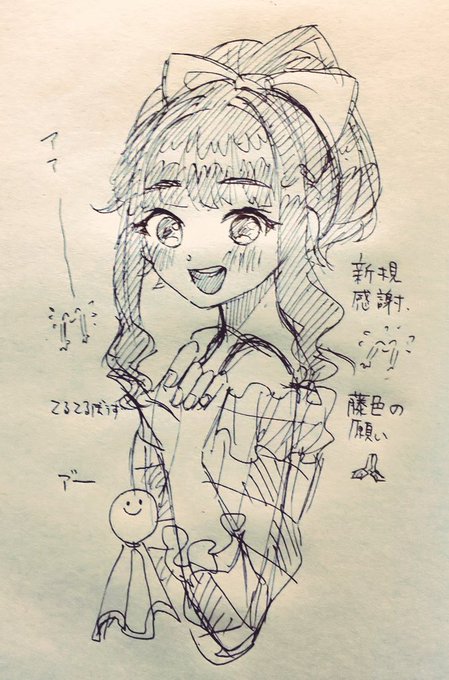 アア
新規
感謝、
てるてるぼうず
藤色の
願い
デー